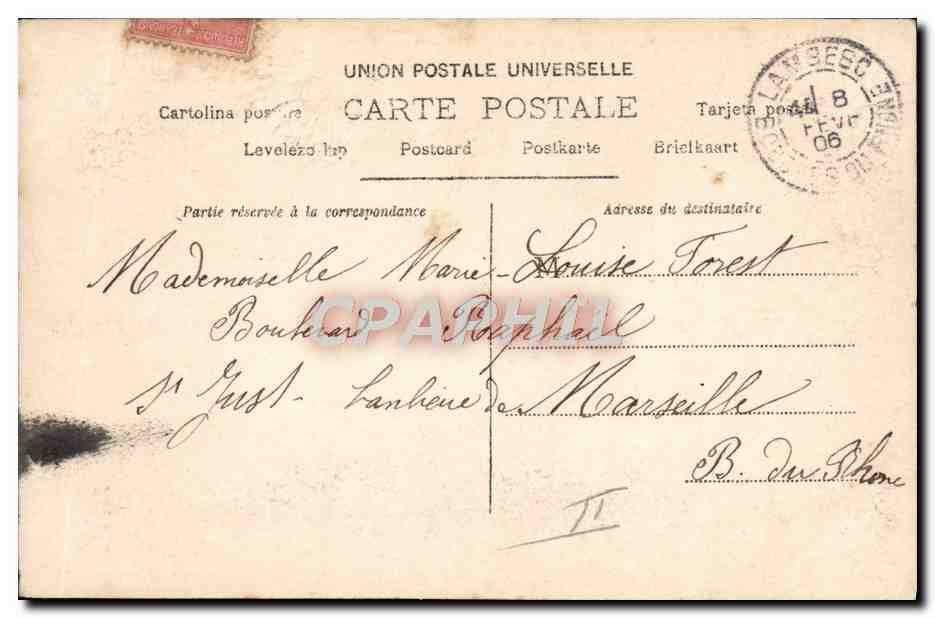 UNION POSTALE UNIVERSELLE
CARTE POSTALE
Cartolina postale Tarjeta postal
Levelező-lap Postcard Postkarte Briefkaart
LAMBESC
8
FEVR
06
BOUCHES DU RHONE
Partie réservée à la correspondance
Adresse du destinataire
Mademoiselle Marie-Louise Forest
Boulevard Raphaël
St Just - banlieue de Marseille
B. du Rhone
II
CPAPHIL